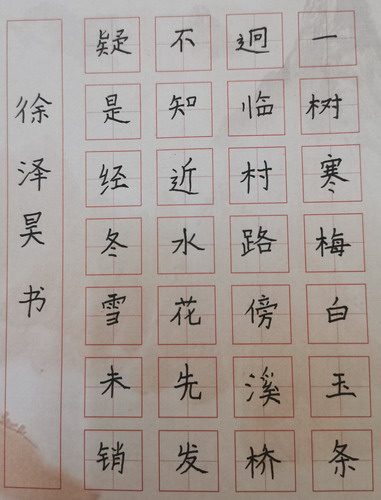 一树寒梅白玉条
迥临村路傍溪桥
不知近水花先发
疑是经冬雪未销
徐泽昊书